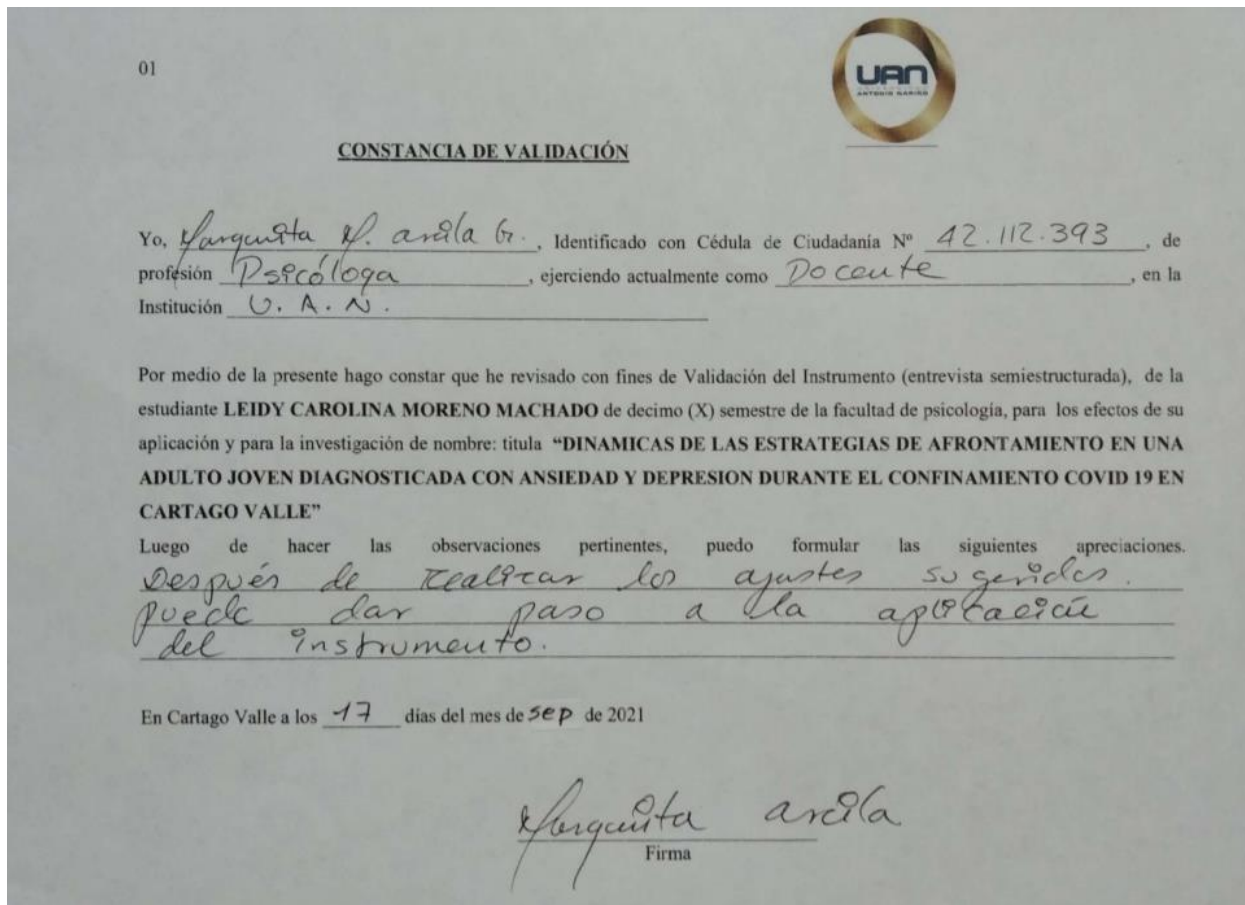 01
UAN
UNIVERSIDAD
ANTONIO NARIÑO
CONSTANCIA DE VALIDACIÓN
Yo, Margarita M. arcila G., Identificado con Cédula de Ciudadanía Nº 42.112.393, de
profesión Psicóloga, ejerciendo actualmente como Docente, en la
Institución U.A.N.
Por medio de la presente hago constar que he revisado con fines de Validación del Instrumento (entrevista semiestructurada), de la
estudiante LEIDY CAROLINA MORENO MACHADO de decimo (X) semestre de la facultad de psicología, para los efectos de su
aplicación y para la investigación de nombre: titula “DINAMICAS DE LAS ESTRATEGIAS DE AFRONTAMIENTO EN UNA
ADULTO JOVEN DIAGNOSTICADA CON ANSIEDAD Y DEPRESION DURANTE EL CONFINAMIENTO COVID 19 EN
CARTAGO VALLE”
Luego de hacer las observaciones pertinentes, puedo formular las siguientes apreciaciones.
Después de realizar los ajustes sugeridos.
puede dar paso a la aplicación
del instrumento.
En Cartago Valle a los 17 días del mes de sep de 2021
Margarita arcila
Firma